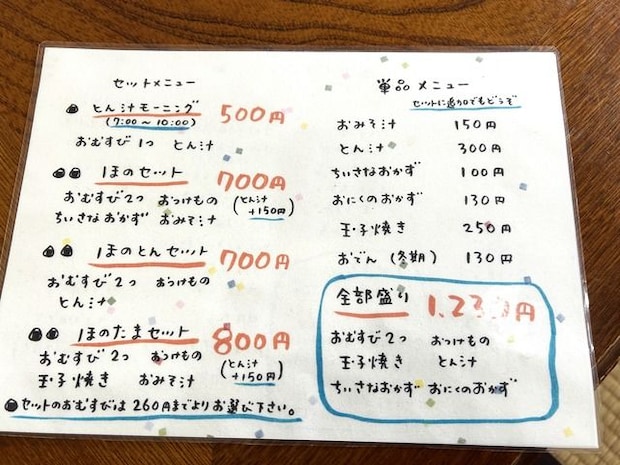 セットメニュー
とん汁モーニング 500円
(7:00〜10:00)
おむすび1つ とん汁
1ほのセット 700円
おむすび2つ おつけもの (とん汁
ちいさなおかず おみそ汁 +150円)
1ほのとんセット 700円
おむすび2つ おつけもの
とん汁
1ほのたまセット 800円
おむすび2つ おつけもの (とん汁
玉子焼き おみそ汁 +150円)
セットのおむすびは260円までよりお選び下さい。
単品メニュー
セットに追加でもどうぞ
おみそ汁 150円
とん汁 300円
ちいさなおかず 100円
おにくのおかず 130円
玉子焼き 250円
おでん (冬期) 130円
全部盛り 1,230円
おむすび2つ おつけもの
玉子焼き とん汁
ちいさなおかず おにくのおかず